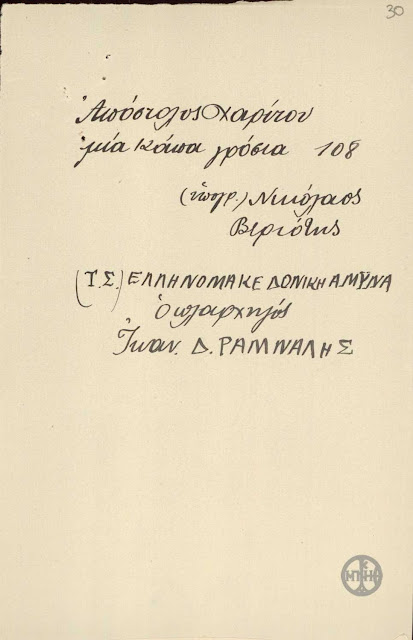 30
Ἀπόστολος Χαρίτου
μία κάπα γρόσια 108
(ὑπογρ.) Νικόλαος
Βεριότης
(Τ.Σ.) ΕΛΛΗΝΟΜΑΚΕΔΟΝΙΚΗ ΑΜΥΝΑ
Ὁ ὁπλαρχηγός
Ἰωαν. Δ. ΡΑΜΝΑΛΗΣ